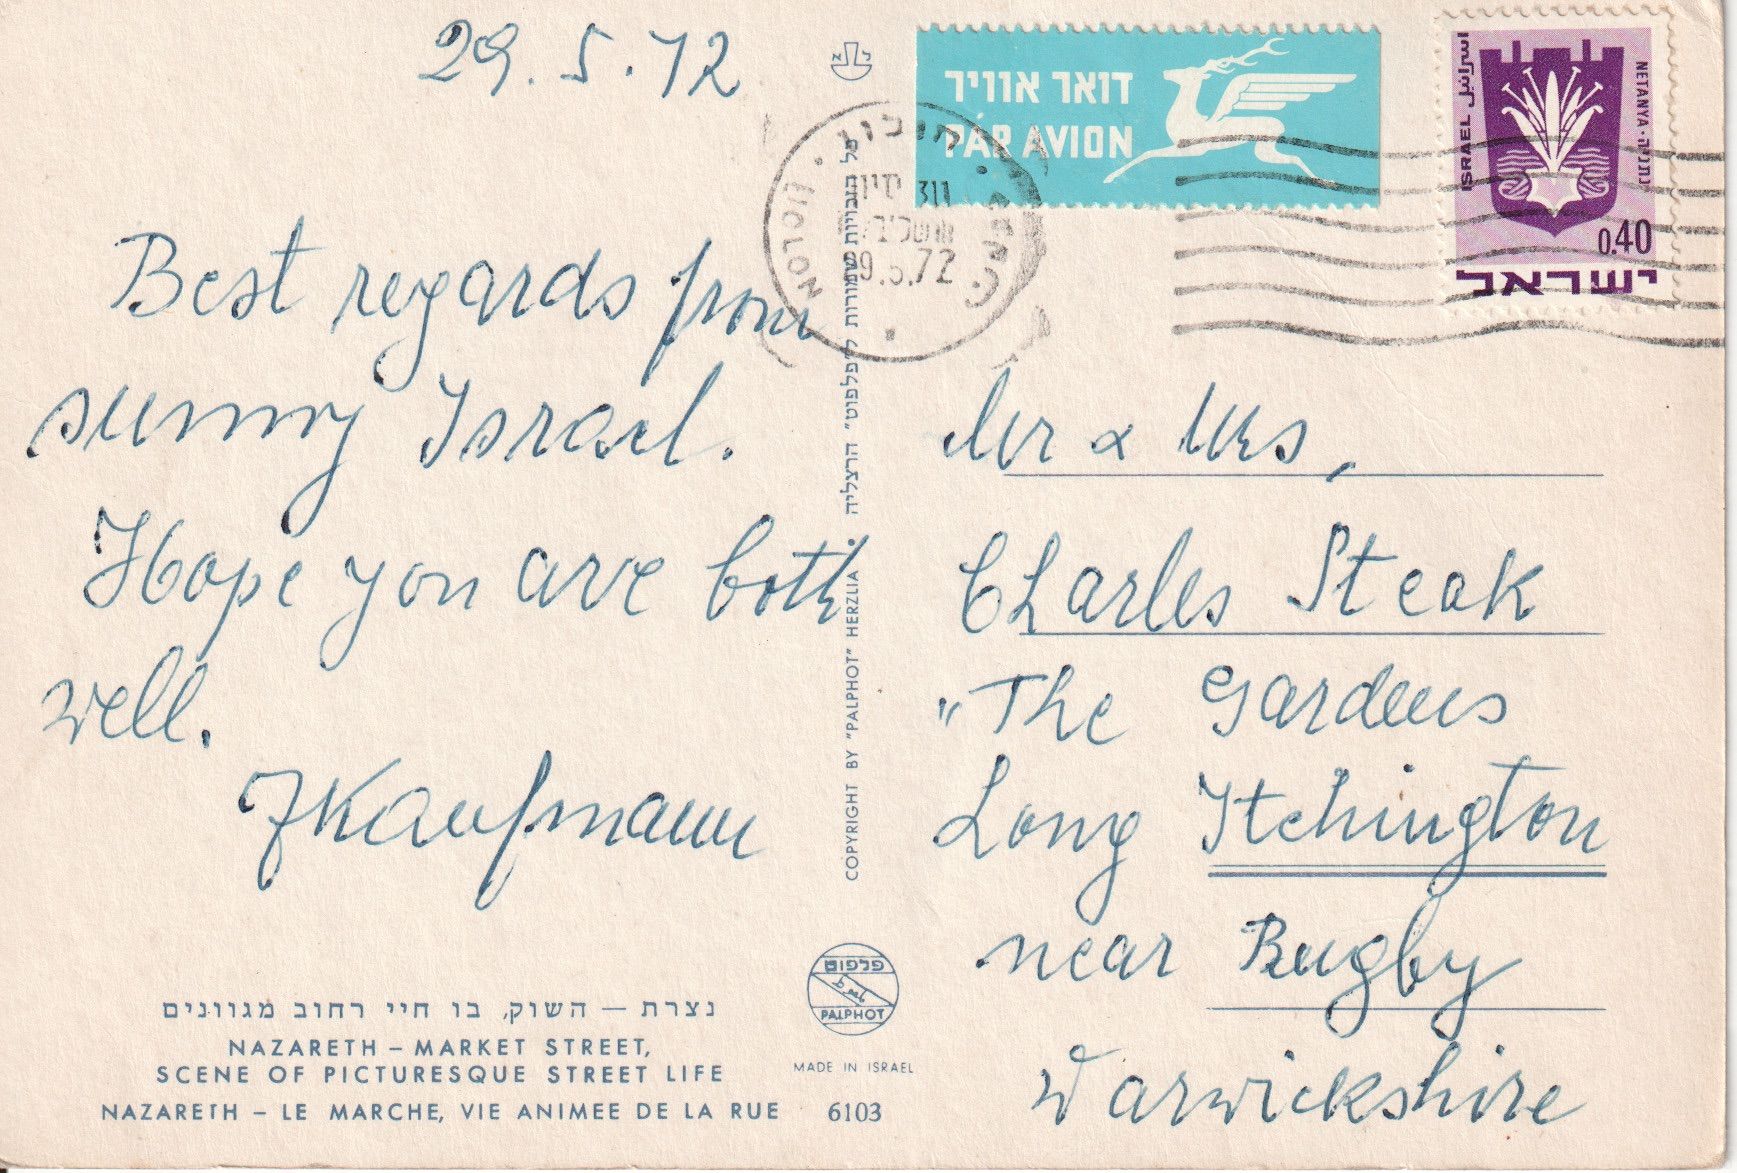 29.5.72
Best regards from
sunny Israel.
Hope you are both
well.
JKaufmann
נצרת — השוק, בו חיי רחוב מגוונים
NAZARETH – MARKET STREET,
SCENE OF PICTURESQUE STREET LIFE
NAZARETH – LE MARCHE, VIE ANIMEE DE LA RUE 6103
כל הזכויות שמורות ל"פלפוט" הרצליה •
COPYRIGHT BY "PALPHOT" HERZLIA
פלפוט
PALPHOT
MADE IN ISRAEL
דואר אוויר
PAR AVION
ISRAEL اسرائيل
NETANYA · נתניה
0.40
ישראל
HOLON
9.5.72
Mr & Mrs,
Charles Steak
"The Gardens
Long Itchington
near Rugby
Warwickshire